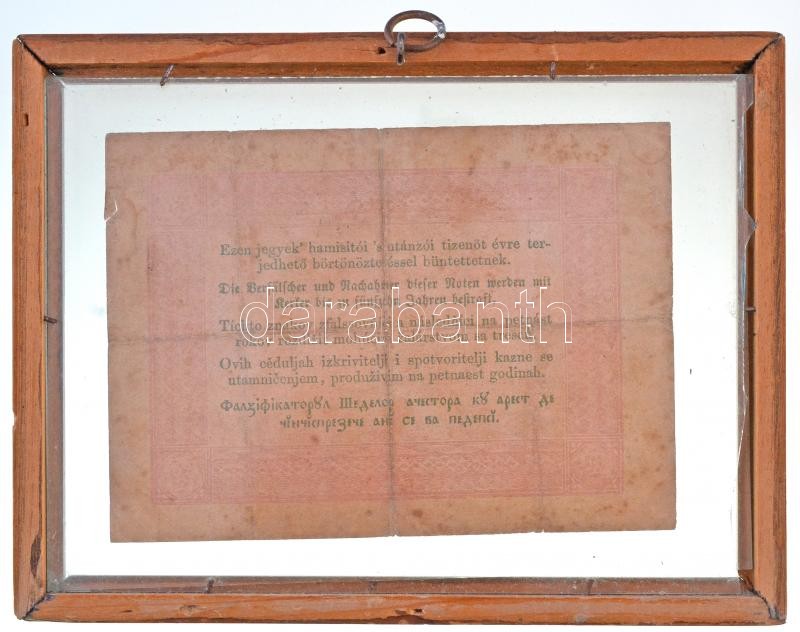 Ezen jegyek' hamisitói 's utánzói tizenöt évre ter-
jedhető börtönöztetéssel büntettetnek.
Die Verfälscher und Nachahmer dieser Noten werden mit
Kerker bis zu fünfzehn Jahren bestraft.
darabanth
Tíchto znakov na petnást
rokov trescú
Ovih cěduljah izkrivitelji i spotvoritelji kazne se
utamničenjem, produživim na petnaest godinah.
Фалзіфікаторꙋл Шеделор ачестора кꙋ арест де
чінчіспрезече ані се ва педепсі.